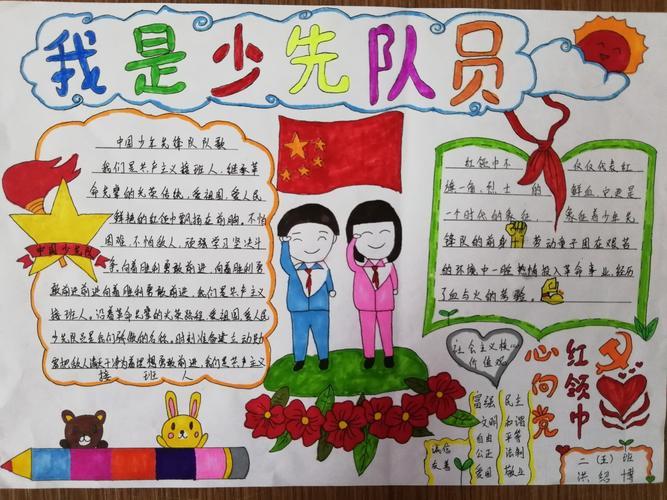 我是少先队员
中国少年先锋队队歌
我们是共产主义接班人,继承革
命先辈的光荣传统,爱祖国,爱人民
鲜艳的红领巾飘扬在前胸。不怕
困难,不怕敌人,顽强学习坚决斗
争,向着胜利勇敢前进,向着胜利勇
敢前进前进向着胜利勇敢前进,我们是共产主义
接班人。沿着革命先辈的光荣路程,爱祖国,爱人民
少先队员是我们骄傲的名称。时刻准备建立功勋
要把敌人消灭干净为着理想勇敢前进,我们是共产主义
接班人
中国少先队
红领巾不仅仅代表红
旗一角,烈士的鲜血,它更是
一个时代的象征,象征着少年先
锋队的前身劳动童子团在艰苦
的环境中一腔热情投入革命事业,经历
了血与火的考验
社会主义核心
价值观
富强 民主
文明 和谐
自由 平等
公正 法制
爱国 敬业
诚信
友善
红领巾
心向党
二(五)班
洪绍博